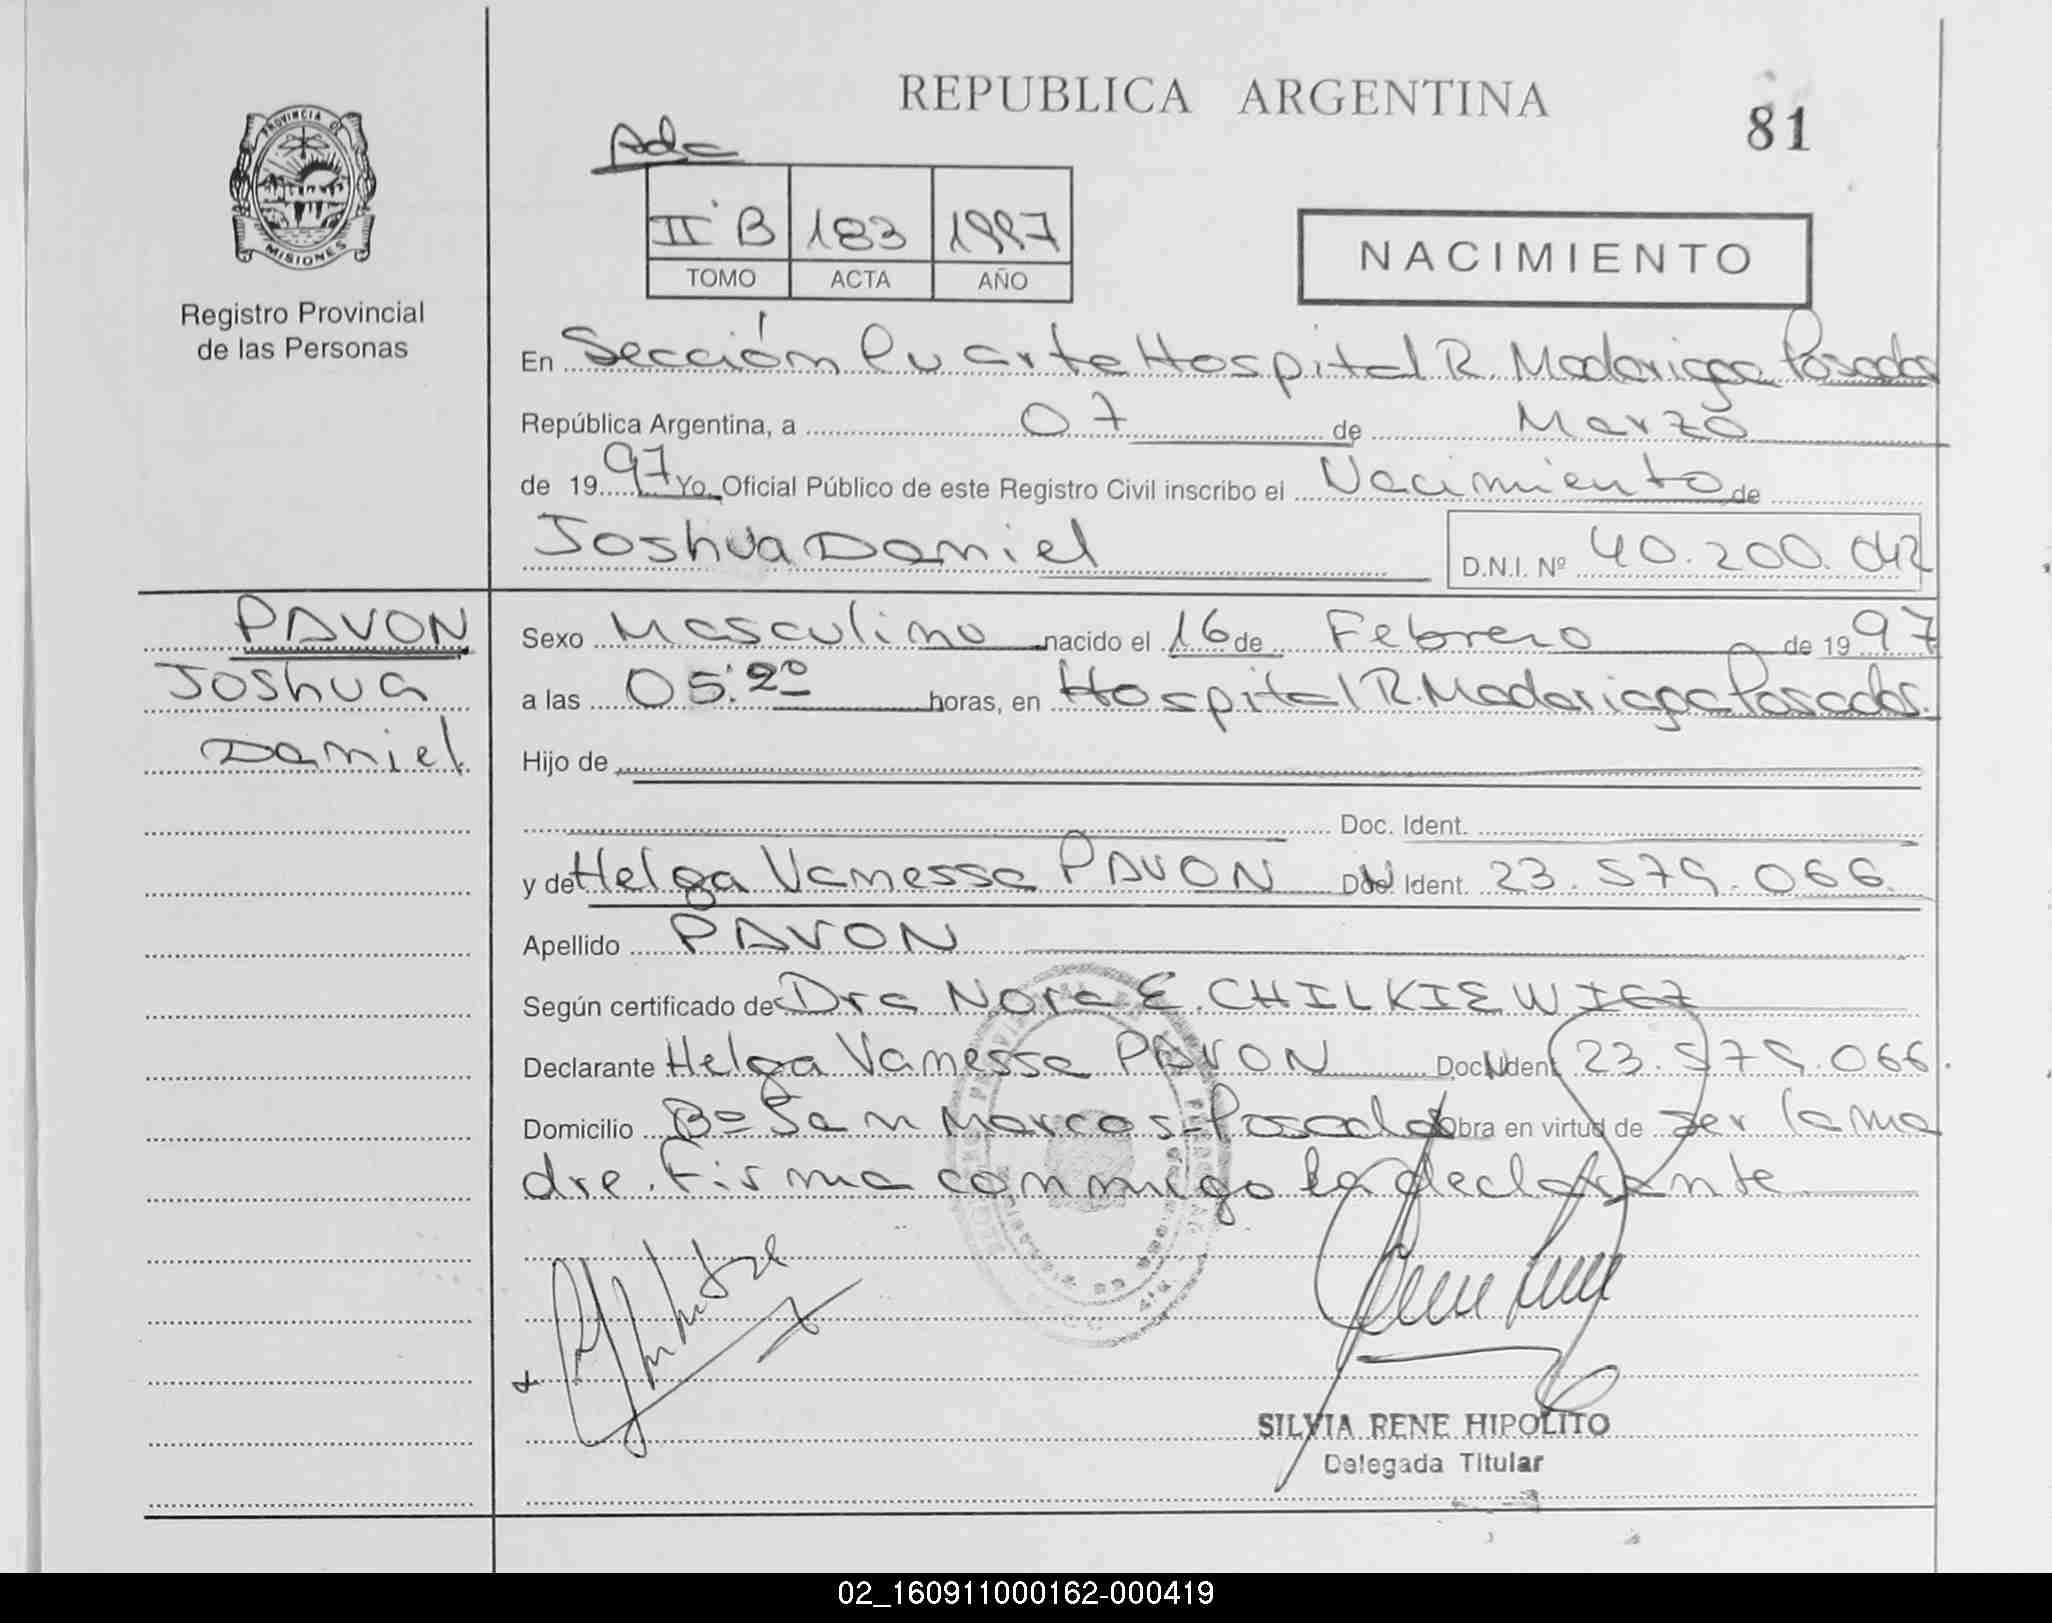 REPUBLICA ARGENTINA
81
PROVINCIA DE
MISIONES
Registro Provincial
de las Personas
Adc
II B 183 1997
TOMO ACTA AÑO
NACIMIENTO
En Sección Cuarta Hospital R. Madariaga Posadas
República Argentina, a 07 de Marzo
de 1997 Yo, Oficial Público de este Registro Civil inscribo el Nacimiento de
Joshua Daniel D.N.I. Nº 40.200.042
PAVON
Joshua
Daniel
Sexo Masculino nacido el 16 de Febrero de 1997
a las 05:20 horas, en Hospital R. Madariaga Posadas.
Hijo de
Doc. Ident.
y de Helga Vanessa PAVON Doc. Ident. 23.579.066
Apellido PAVON
Según certificado de Dra Nora E. CHILKIEWIEZ
Declarante Helga Vanessa PAVON Doc. Ident. 23.579.066.
Domicilio Bº San Marcos-Posadas Obra en virtud de ser la ma
dre. Firma conmigo la declarante
SILVIA RENE HIPOLITO
Delegada Titular
02_160911000162-000419